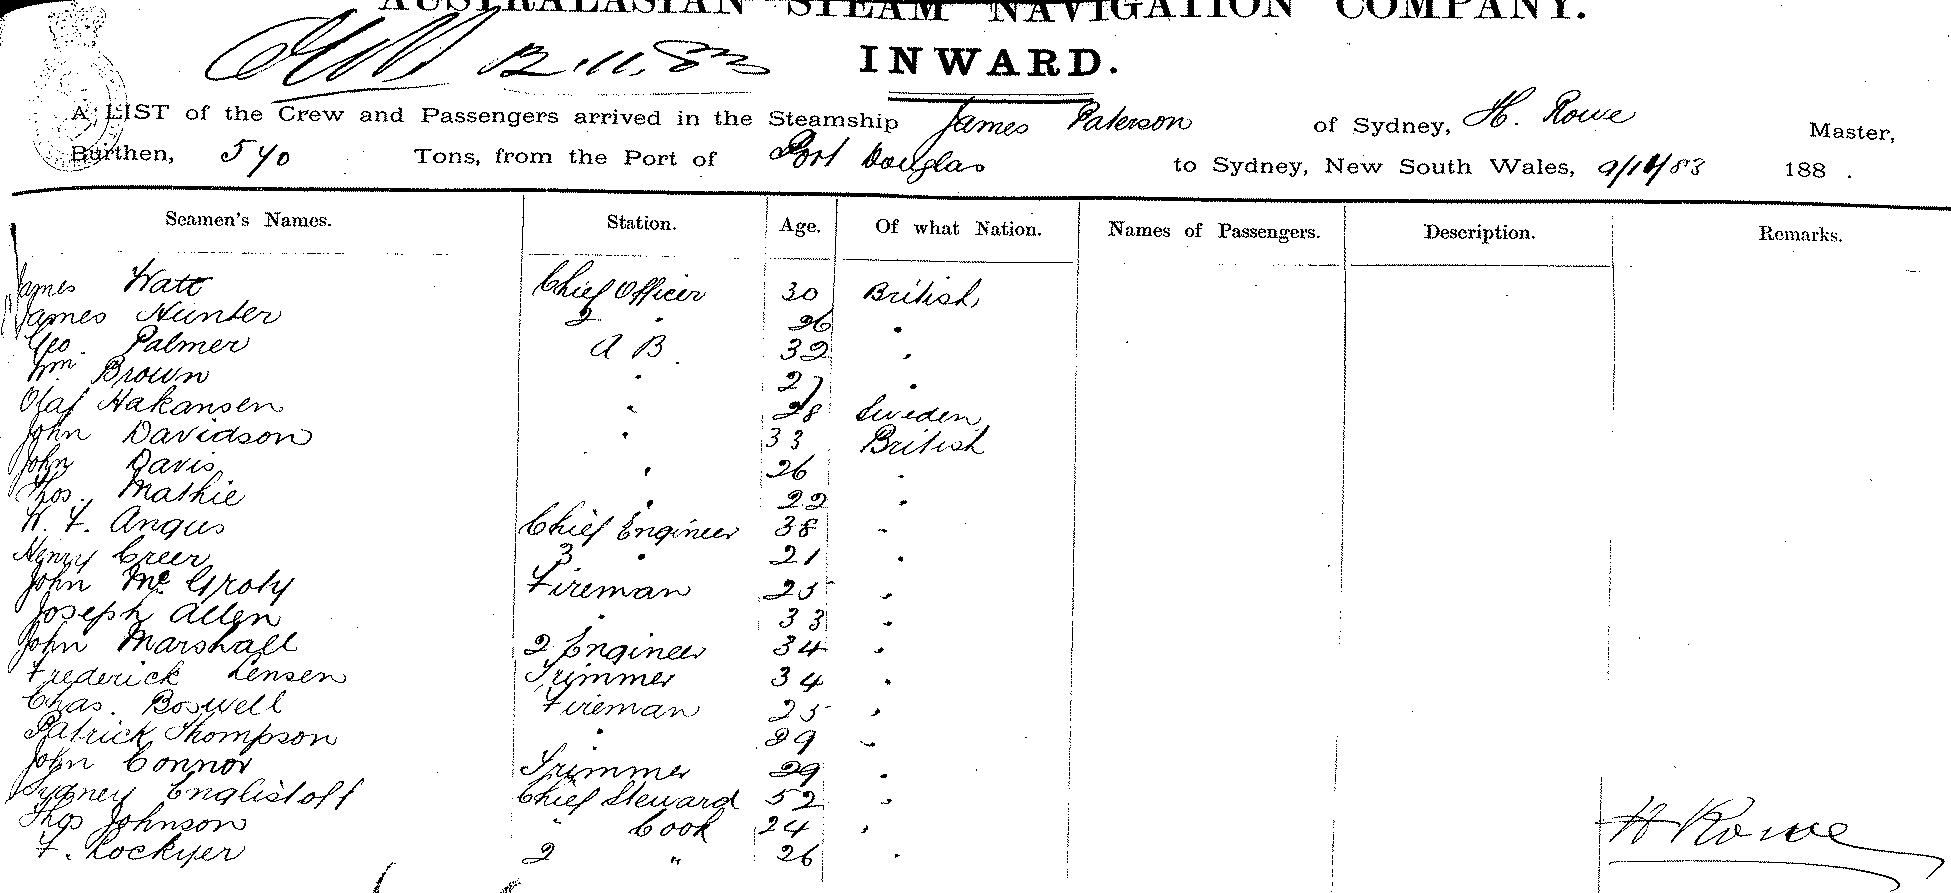 AUSTRALASIAN STEAM NAVIGATION COMPANY.
12.11.83 INWARD.
A LIST of the Crew and Passengers arrived in the Steamship James Paterson of Sydney, H. Rowe Master,
Burthen, 540 Tons, from the Port of Port Douglas to Sydney, New South Wales, 9/11/83 188 .
Seamen's Names. Station. Age. Of what Nation. Names of Passengers. Description. Remarks.
James Watt Chief Officer 30 British
James Hunter 2 " 26 "
Geo. Palmer A B 32 "
Wm Brown " 27 "
Olaf Hakansen " 28 Sweden
John Davidson " 33 British
John Davis " 26 "
Thos. Mathie " 22 "
W. F. Angus Chief Engineer 38 "
Henry Creer 3 " 21 "
John Mc Groty Fireman 25 "
Joseph Allen " 33 "
John Marshall 2 Engineer 34 "
Frederick Lensen Trimmer 34 "
Chas. Boswell Fireman 25 "
Patrick Thompson " 29 "
John Connor Trimmer 29 "
Sydney Englistoft Chief Steward 52 "
Thos Johnson " Cook 24 "
F. Lockyer 2 " 26 "
H Rowe